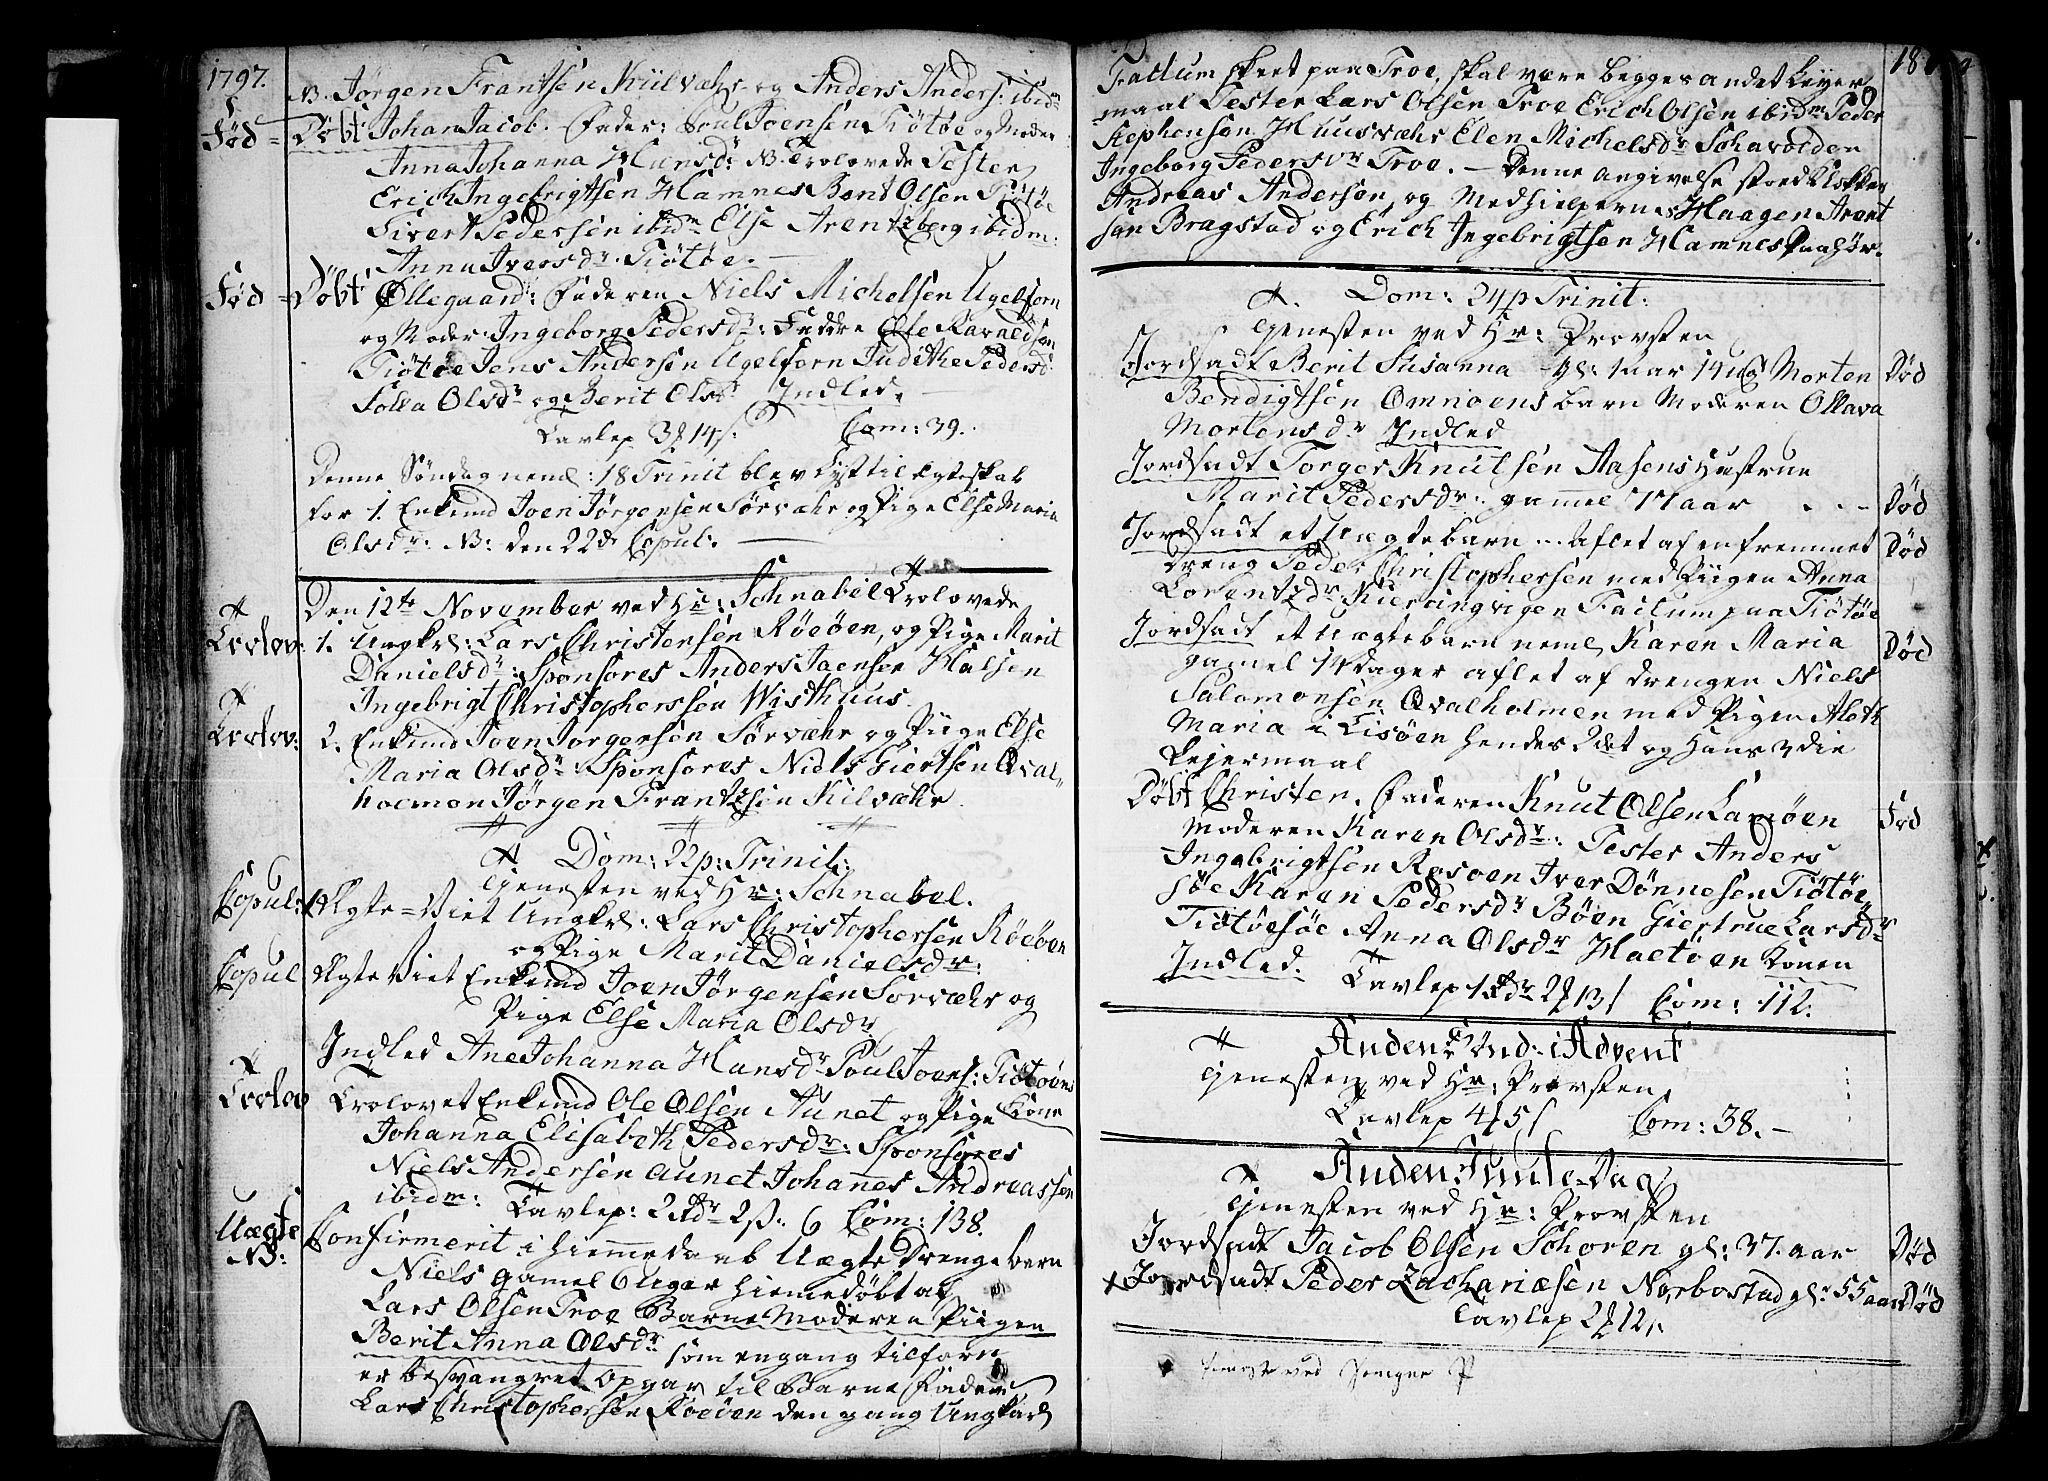 1797.
NB. Jørgen Frantsen Kiilvæhr og Anders Anders: ibidm
Fød = Døbt Johan Jacob. Fader: Poul Joensen Tiøtøe og Moder
Anna Johanna Hansdr: NB. Trolovede Fester
Erich Ingebrigtsen Hamnes Bent Olsen Tiøtøe
Sivert Pedersen ibidm Else Arentzberg ibidm:
Anna Iversdr. Tiøtøe. —
Fød = Døbt Ollegaard: Faderen Niels Michelsen Ugelforn
og Moder: Ingeborg Pedersdr: Faddre Ole Ravnedsøn
Tiøtøe Jens Andersen Ugelforn Judithe Pedersd:
Solla Olsdr og Berit Olsdr Indled.
Tavlep 3 14 s. Com: 39.
Denne Søndag neml: 18 Trinit blev Lyst til Ægteskab
for 1. Enkemd Joen Jørgensen Sørvæhr og Pige Else Maria
Olsdr: NB: den 22d Copul. —
Den 12te November ved Hr: Schnabel Trolovede
Trolov: 1. Ungkl: Lars Christensen Røeøen, og Pige Marit
Danielsdr: Sponsores Anders Joensen Halsen
Ingebrigt Christophersen Wisthuus.
Trolov: 2. Enkemd Joen Jørgensen Sørvæhr og Piige Else
Maria Olsdr Sponsores Niels Giertsen Qval-
hoemen Jørgen Frantzen Kilvæhr.
Dom: 22 p: Trinit:
Tjenesten ved Hr: Schnabel.
Copul: Ægte-Viet Ungkl: Lars Christophersen Røeøen
og Pige Marit Danielsdr:
Copul Ægte Viet Enkemd Joen Jørgensen Sørvæhr og
Pige Else Maria Olsdr
Indled Ane Johanna Hansdr Poul Joens: Tiøtøens
Kone
Trolov Trolovet Enkemd Ole Olsen Aunet og Pige
Johanna Elisabeth Pedersdr: Sponsores
Niels Andersen Aunet Johanes Andreassen
ibidm: Tavlep: 2 rdr 2 6 Com: 138.
Uægte Confirmerit i hiemmedaab Uægte Drenge barn
NB: Niels gamel 6 Uger hiemedøbt af
Lars Olsen Troe Barne Moderen Piigen
Berit Anna Olsdr som engang tilforn
er besvangret opgav til Barne Fader
Lars Christophersen Røeøen den gang Ungkarl
18
Factum skeet paa Troe, skal være begges andet Leyer
maal Fester Lars Olsen Troe Erich Olsen ibidm Peder
Stephensen Huusvæhr Elen Michelsdr Schavolden
Ingeborg Pedersdr Troe. — Denne angivelse stoed Klokker
Andreas Andersen, og Medhielperne Haagen Arent
sen Bragstad og Erich Ingebrigtsen Hamnes Paahør.
Dom: 24 p Trinit:
Tjenesten ved Hr: Provsten
Jordsadt Berit Susanna gl: 1 aar 14 ug Morten Død
Bendigtsen Omnøens barn Moderen Ollava
Mortensdr Indled
Jordsadt Torger Knutsen Aasens Hustrue
Marit Pedersdr: gammel 71 aar . . — Død
Jordsadt et Uægte barn ... aflet af en fremmet Død
Dreng Peder Christophersen med Piigen Anna
Lorentzdr Kierringvigen Factum paa Tiøtøe
Jordsadt et Uægte barn neml Karen Maria Død
gamel 14 dager aflet af drengen Niels
Salomonsen Qvalholmen med Pigen Aleth
Maria i Lisøen hendes 2det og hans 3die
Lejermaal
Døbt Christen. Faderen Knut Olsen Lamøen Fød
Moderen Karen Olsdr: Fester Anders
Ingebrigtsen Rosøen Iver Dønnesen Tiøtøe
søe Karen Pedersdr Bøen Giertrue Larsdr
Tiøtøesøe Anna Olsdr Haltøen Konen
Indled. Tavlep 1 rdr 2 13 s Com: 112.
Anden Sønd: i Advent
Tjenesten ved Hr: Provsten,
Tavlep 4 5 s Com: 38. —
Anden Juule-Dag
Tjenesten ved Hr: Provsten
Jordsadt Jacob Olsen Schoren gl: 37. aar Død
Jordsadt Peder Zachariæsen Norbostad gl: 55 aar Død
Tavlep 2 12 s.